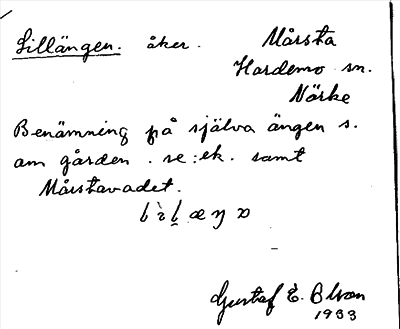 Lillängen. åker. Mårsta
Hardemo sn.
Närke
Benämning på själva ängen s.
om gården. se: ek. samt
Mårstavadet.
Gustaf E.
1933